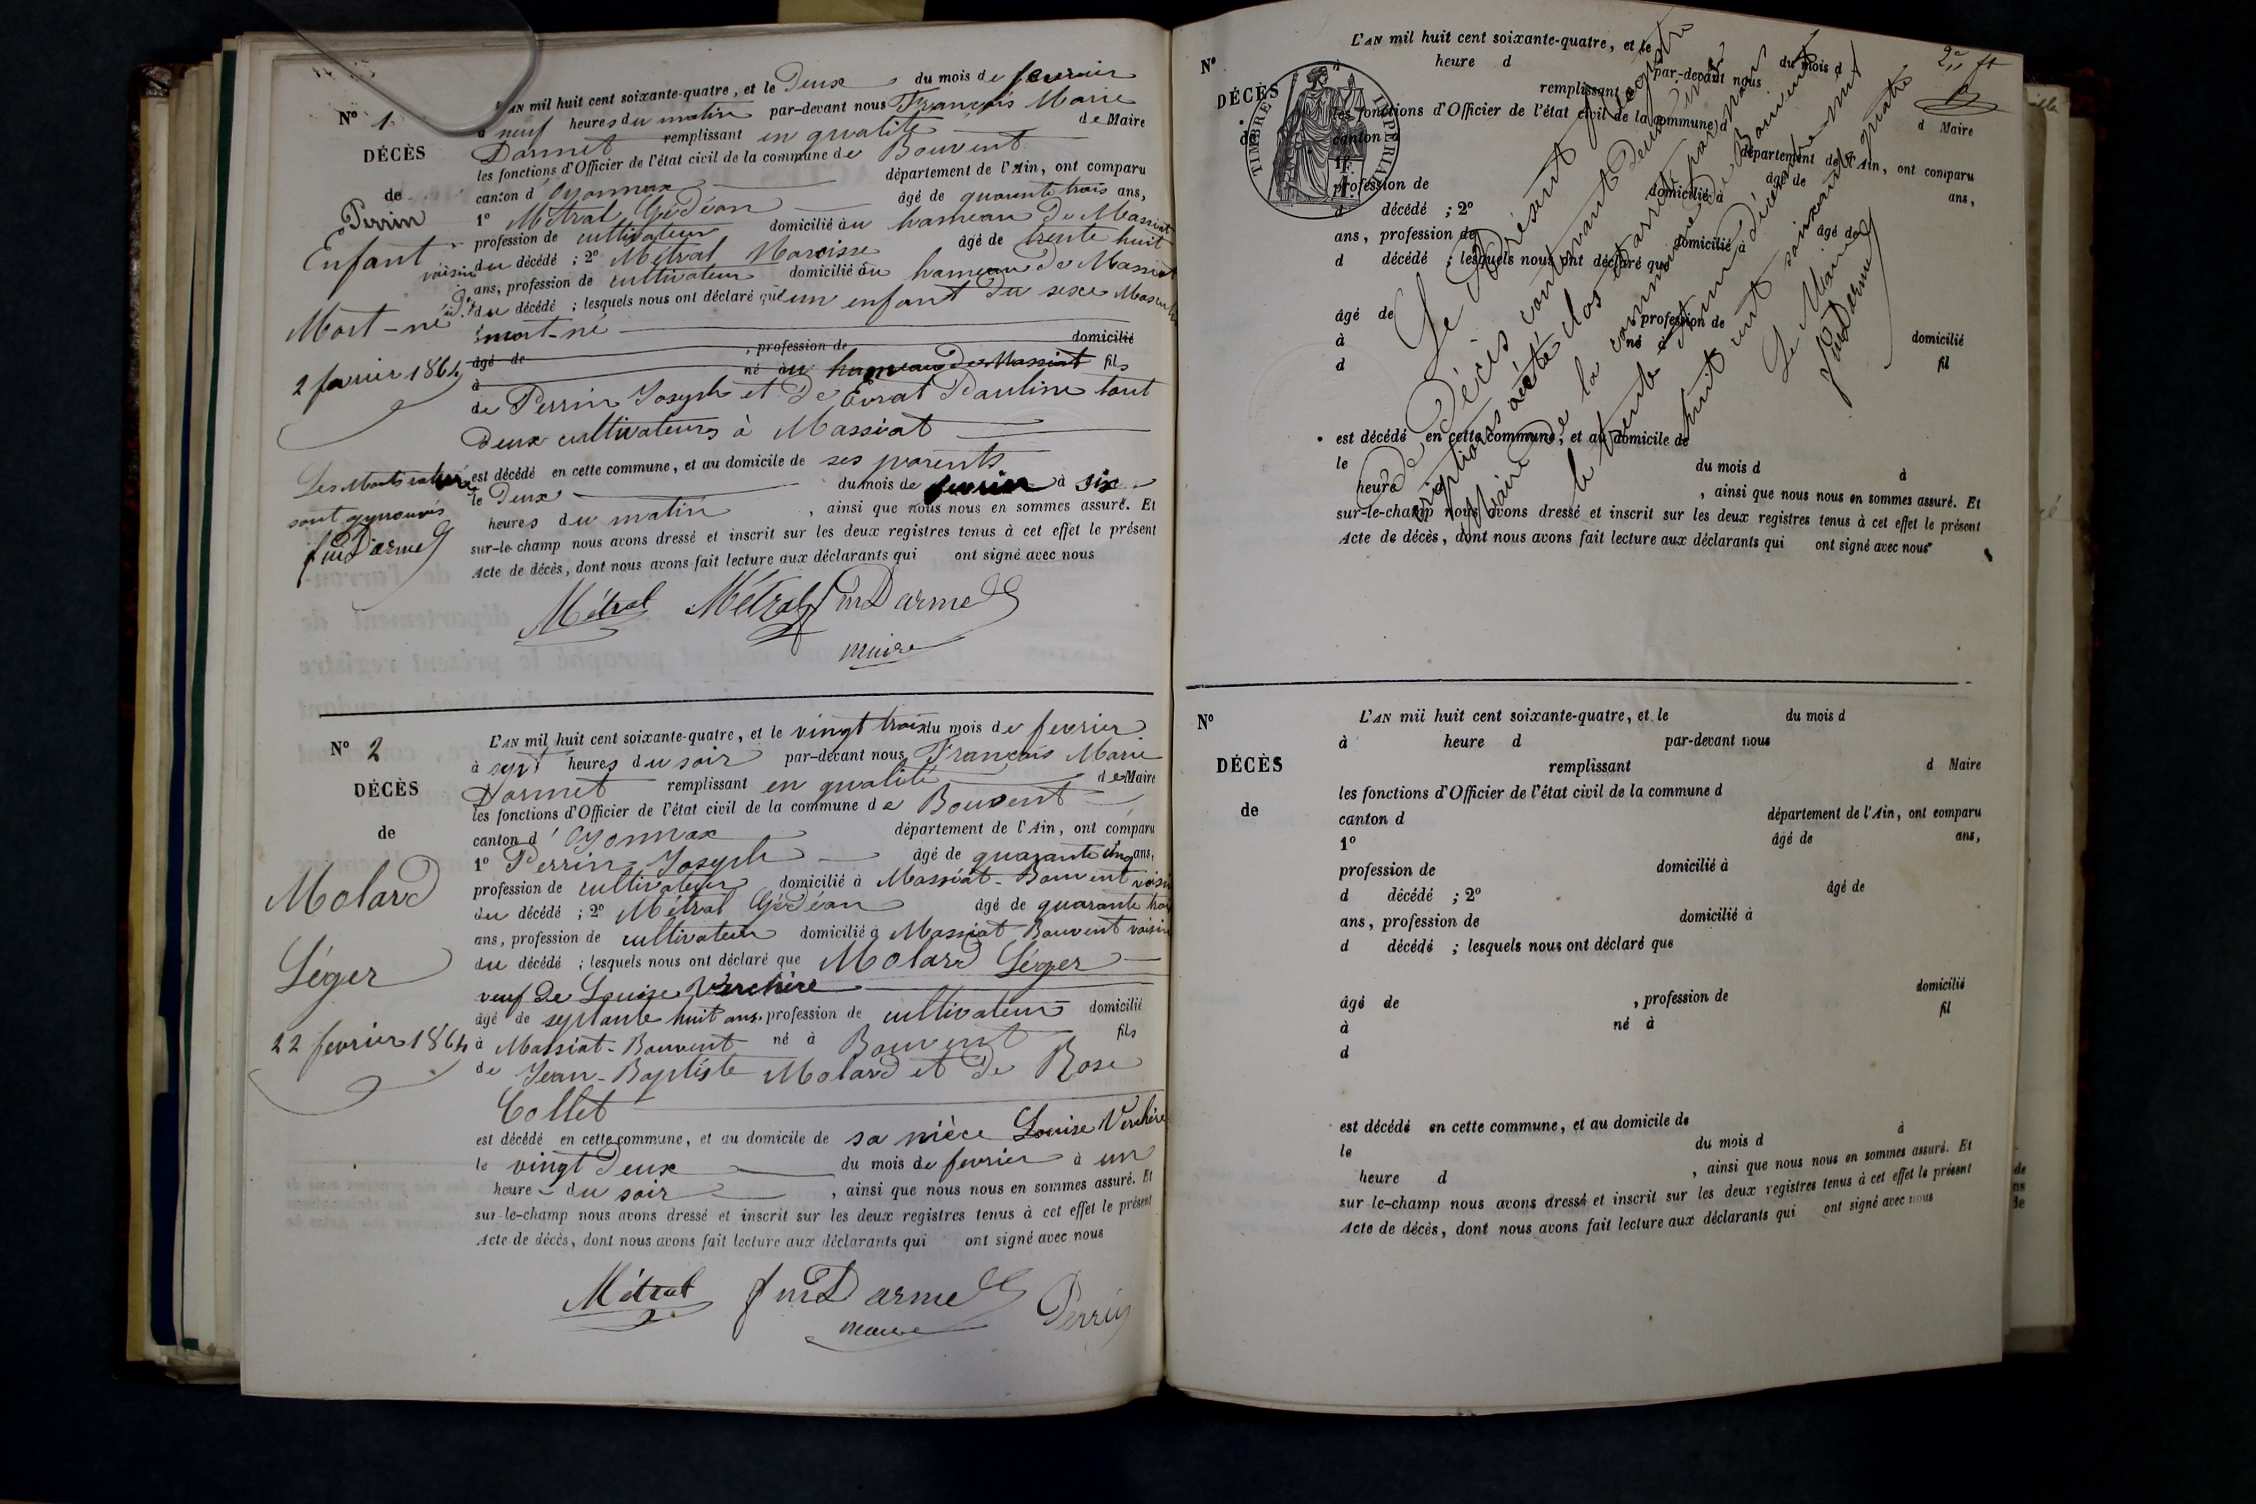 N° 1
DÉCÈS
de
Perrin
Enfant
Mort-né
2 fevrier 1864
L'AN mil huit cent soixante-quatre, et le Deux du mois de fevrier
à neuf heures du matin par-devant nous François Marie
Darmet remplissant en qualité de Maire
les fonctions d'Officier de l'état civil de la commune de Bouvent
canton d'Oyonnax département de l'Ain, ont comparu
1° Métral Gédéon âgé de quarante trois ans,
profession de cultivateur domicilié au hameau de Massiat
voisin du décédé ; 2° Métral Narcisse âgé de trente huit
ans, profession de cultivateur domicilié au hameau de Massiat
du décédé ; lesquels nous ont déclaré que un enfant du sexe
mort-né
âgé de , profession de domicilié
à né au hameau de Massiat fils
de Perrin Joseph et de Evrat Pauline tout
deux cultivateurs à Massiat
est décédé en cette commune, et au domicile de ses parents
le Deux du mois de fevrier à six
heures du matin , ainsi que nous nous en sommes assuré. Et
sur-le-champ nous avons dressé et inscrit sur les deux registres tenus à cet effet le présent
Acte de décès, dont nous avons fait lecture aux déclarants qui ont signé avec nous
Les Mots
sont approuvés
fm Darmet
Métral Métral fm Darmet
maire
N° 2
DÉCÈS
de
Molard
Léger
22 fevrier 1864
L'AN mil huit cent soixante-quatre, et le vingt trois du mois de fevrier
à sept heures du soir par-devant nous François Marie
Darmet remplissant en qualité de Maire
les fonctions d'Officier de l'état civil de la commune de Bouvent
canton d'Oyonnax département de l'Ain, ont comparu
1° Perrin Joseph âgé de quarante cinq ans,
profession de cultivateur domicilié à Massiat-Bouvent voisin
du décédé ; 2° Métral Gédéon âgé de quarante trois
ans, profession de cultivateur domicilié à Massiat Bouvent voisin
du décédé ; lesquels nous ont déclaré que Molard Léger
veuf de Louise Verchère
âgé de septante huit ans, profession de cultivateur domicilié
à Massiat-Bouvent né à Bouvent fils
de Jean-Baptiste Molard et de Rose
Collet
est décédé en cette commune, et au domicile de sa nièce Louise Verchère
le vingt Deux du mois de fevrier à un
heure du soir , ainsi que nous nous en sommes assuré. Et
sur-le-champ nous avons dressé et inscrit sur les deux registres tenus à cet effet le présent
Acte de décès, dont nous avons fait lecture aux déclarants qui ont signé avec nous
Métral fm Darmet Perrin
maire
N°
DÉCÈS
de
TIMBRE IMPÉRIAL
2e ft
L'AN mil huit cent soixante-quatre, et le du mois d
à heure d par-devant nous
remplissant d Maire
les fonctions d'Officier de l'état civil de la commune d
canton d département de l'Ain, ont comparu
1° âgé de ans,
profession de domicilié à
d décédé ; 2° âgé de
ans, profession de domicilié à
d décédé ; lesquels nous ont déclaré que
âgé de , profession de domicilié
à né à fil
d
est décédé en cette commune, et au domicile de
le du mois d à
heure d , ainsi que nous nous en sommes assuré. Et
sur-le-champ nous avons dressé et inscrit sur les deux registres tenus à cet effet le présent
Acte de décès, dont nous avons fait lecture aux déclarants qui ont signé avec nous
Le Présent Registre
de Décès contenant deux ins-
criptions a été clos et arrêté par nous
Maire de la commune de Bouvent
le trente et un décembre mil
huit cent soixante quatre
Le Maire
fm Darmet
N°
DÉCÈS
de
L'AN mil huit cent soixante-quatre, et le du mois d
à heure d par-devant nous
remplissant d Maire
les fonctions d'Officier de l'état civil de la commune d
canton d département de l'Ain, ont comparu
1° âgé de ans,
profession de domicilié à
d décédé ; 2° âgé de
ans, profession de domicilié à
d décédé ; lesquels nous ont déclaré que
âgé de , profession de domicilié
à né à fil
d
est décédé en cette commune, et au domicile de
le du mois d à
heure d , ainsi que nous nous en sommes assuré. Et
sur le-champ nous avons dressé et inscrit sur les deux registres tenus à cet effet le présent
Acte de décès, dont nous avons fait lecture aux déclarants qui ont signé avec nous